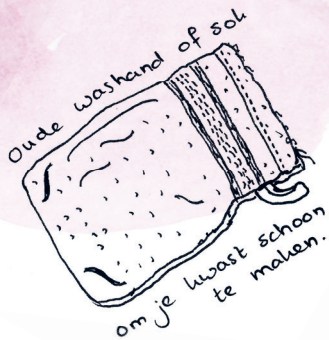 Oude washand of sok
om je kwast schoon
te maken.